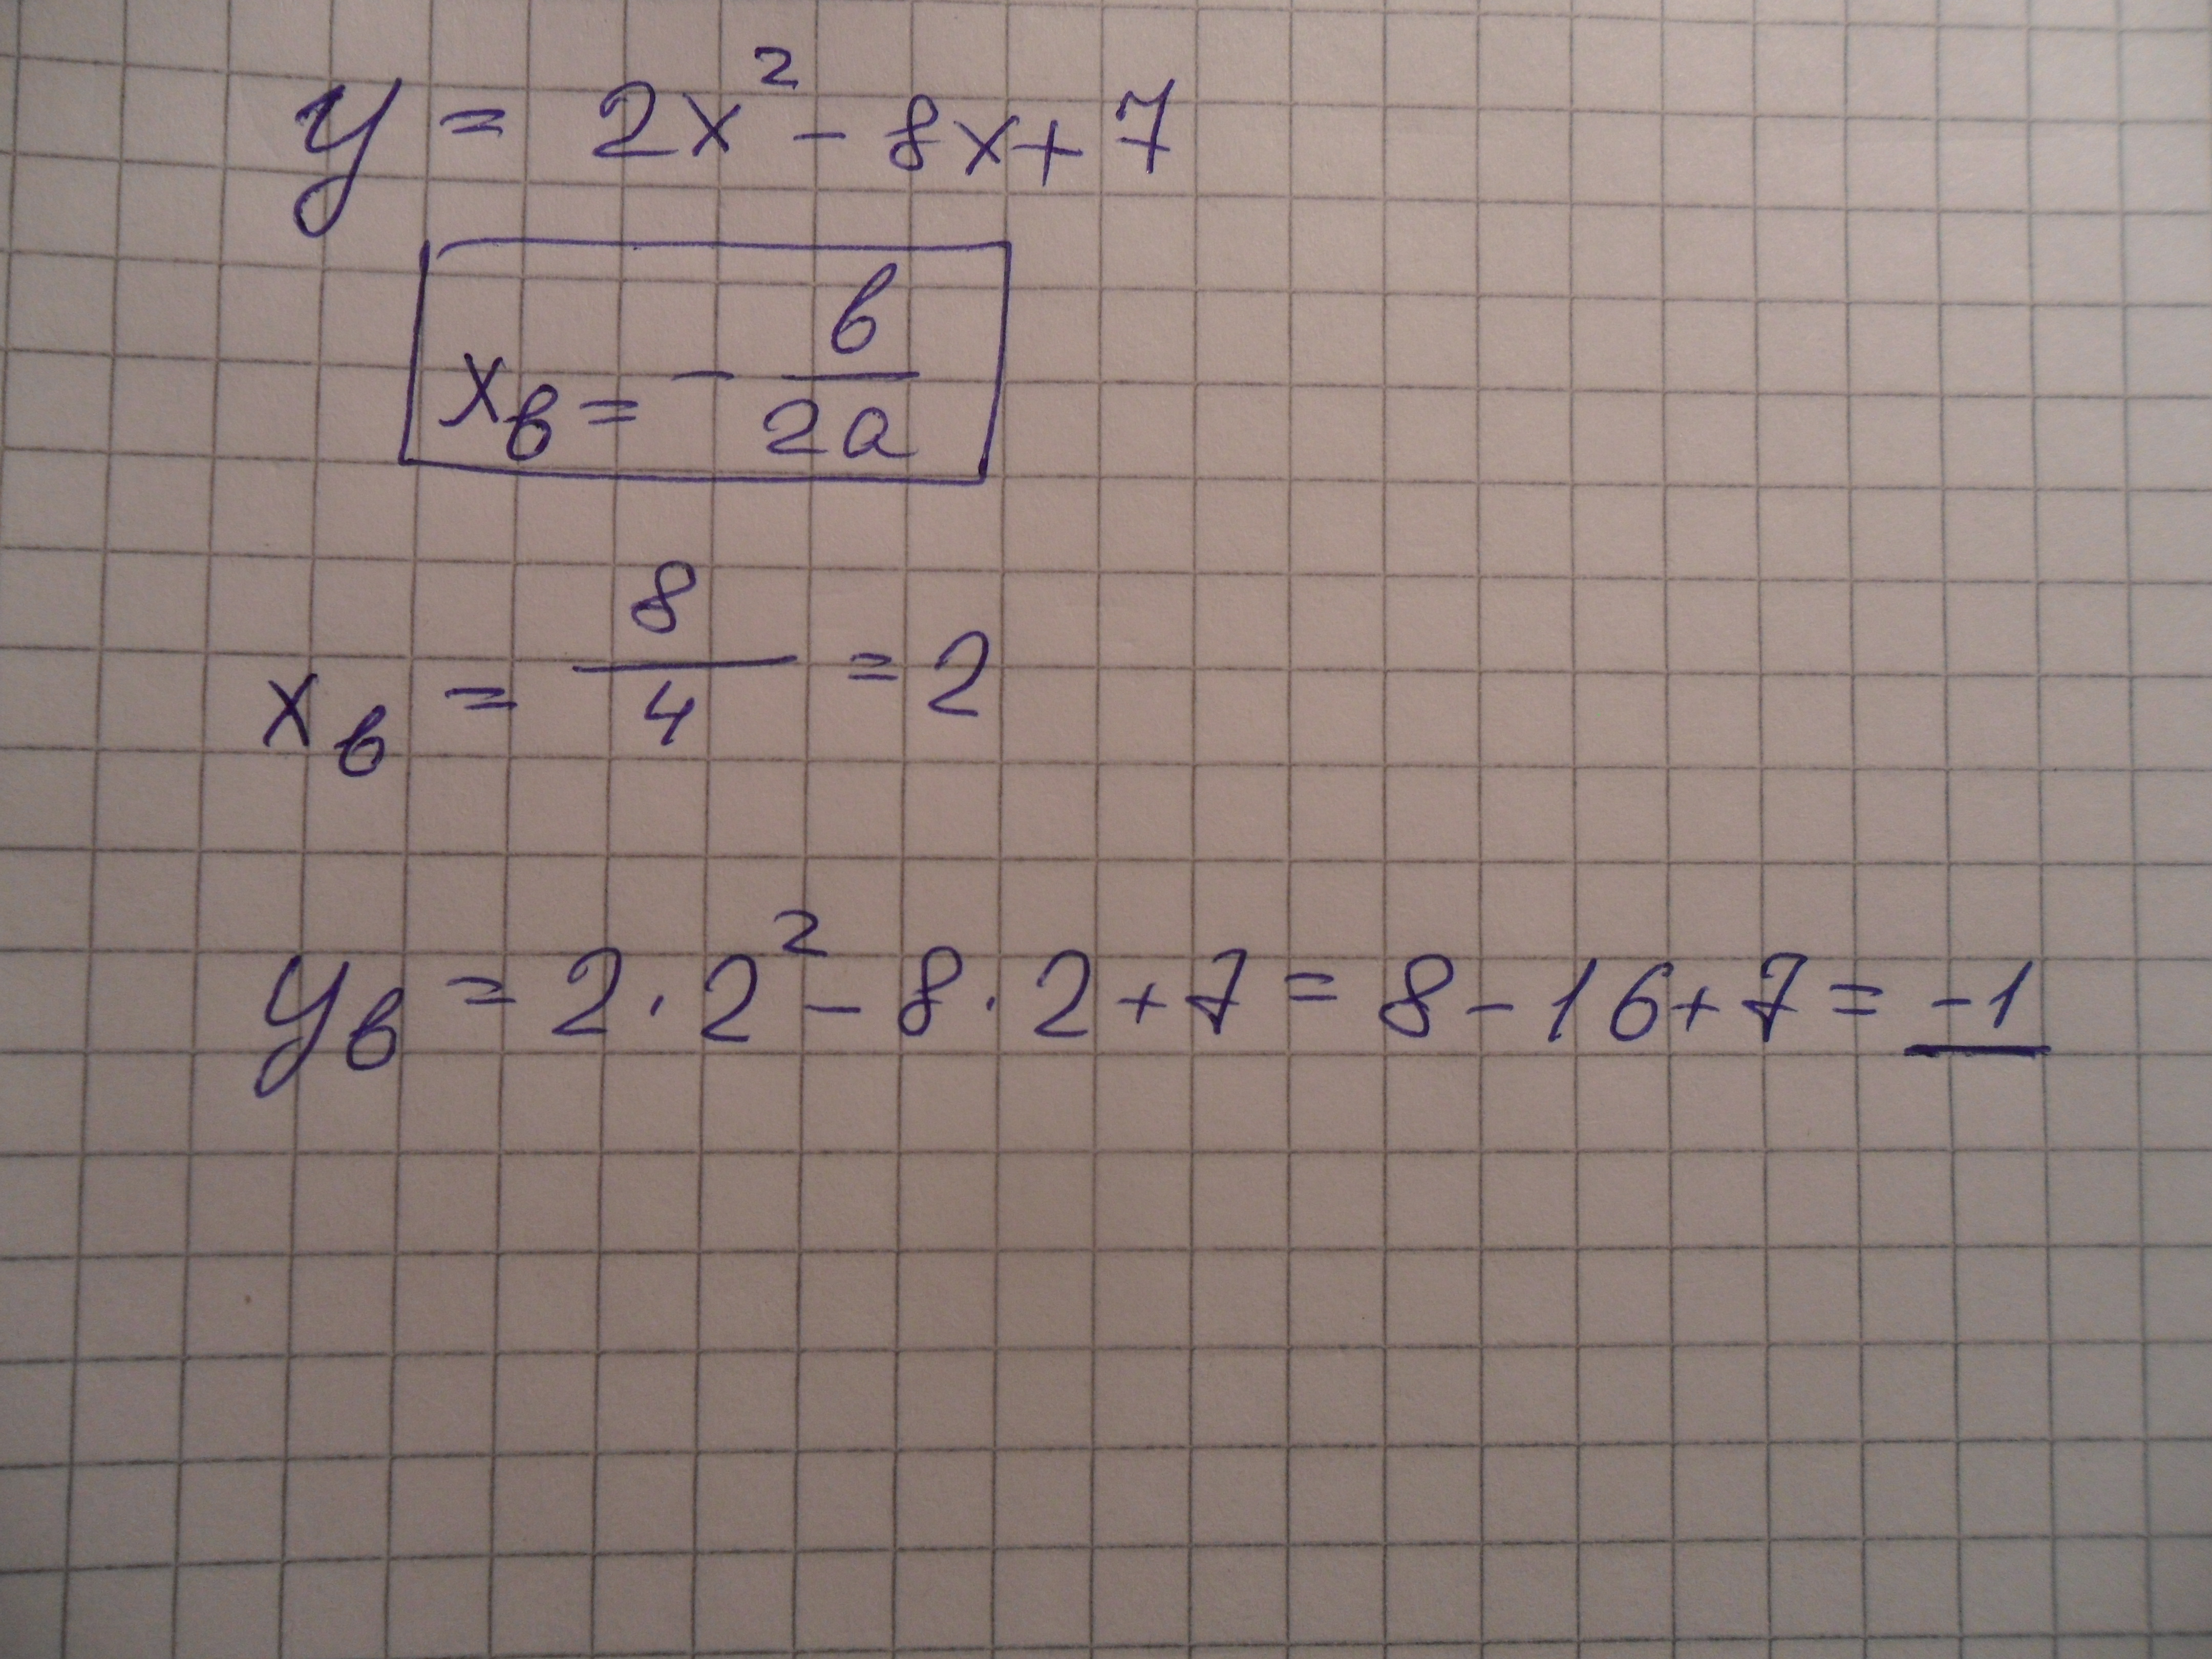 y = 2x² - 8x + 7
xв = - в/2a
xв = 8/4 = 2
yв = 2 · 2² - 8 · 2 + 7 = 8 - 16 + 7 = -1